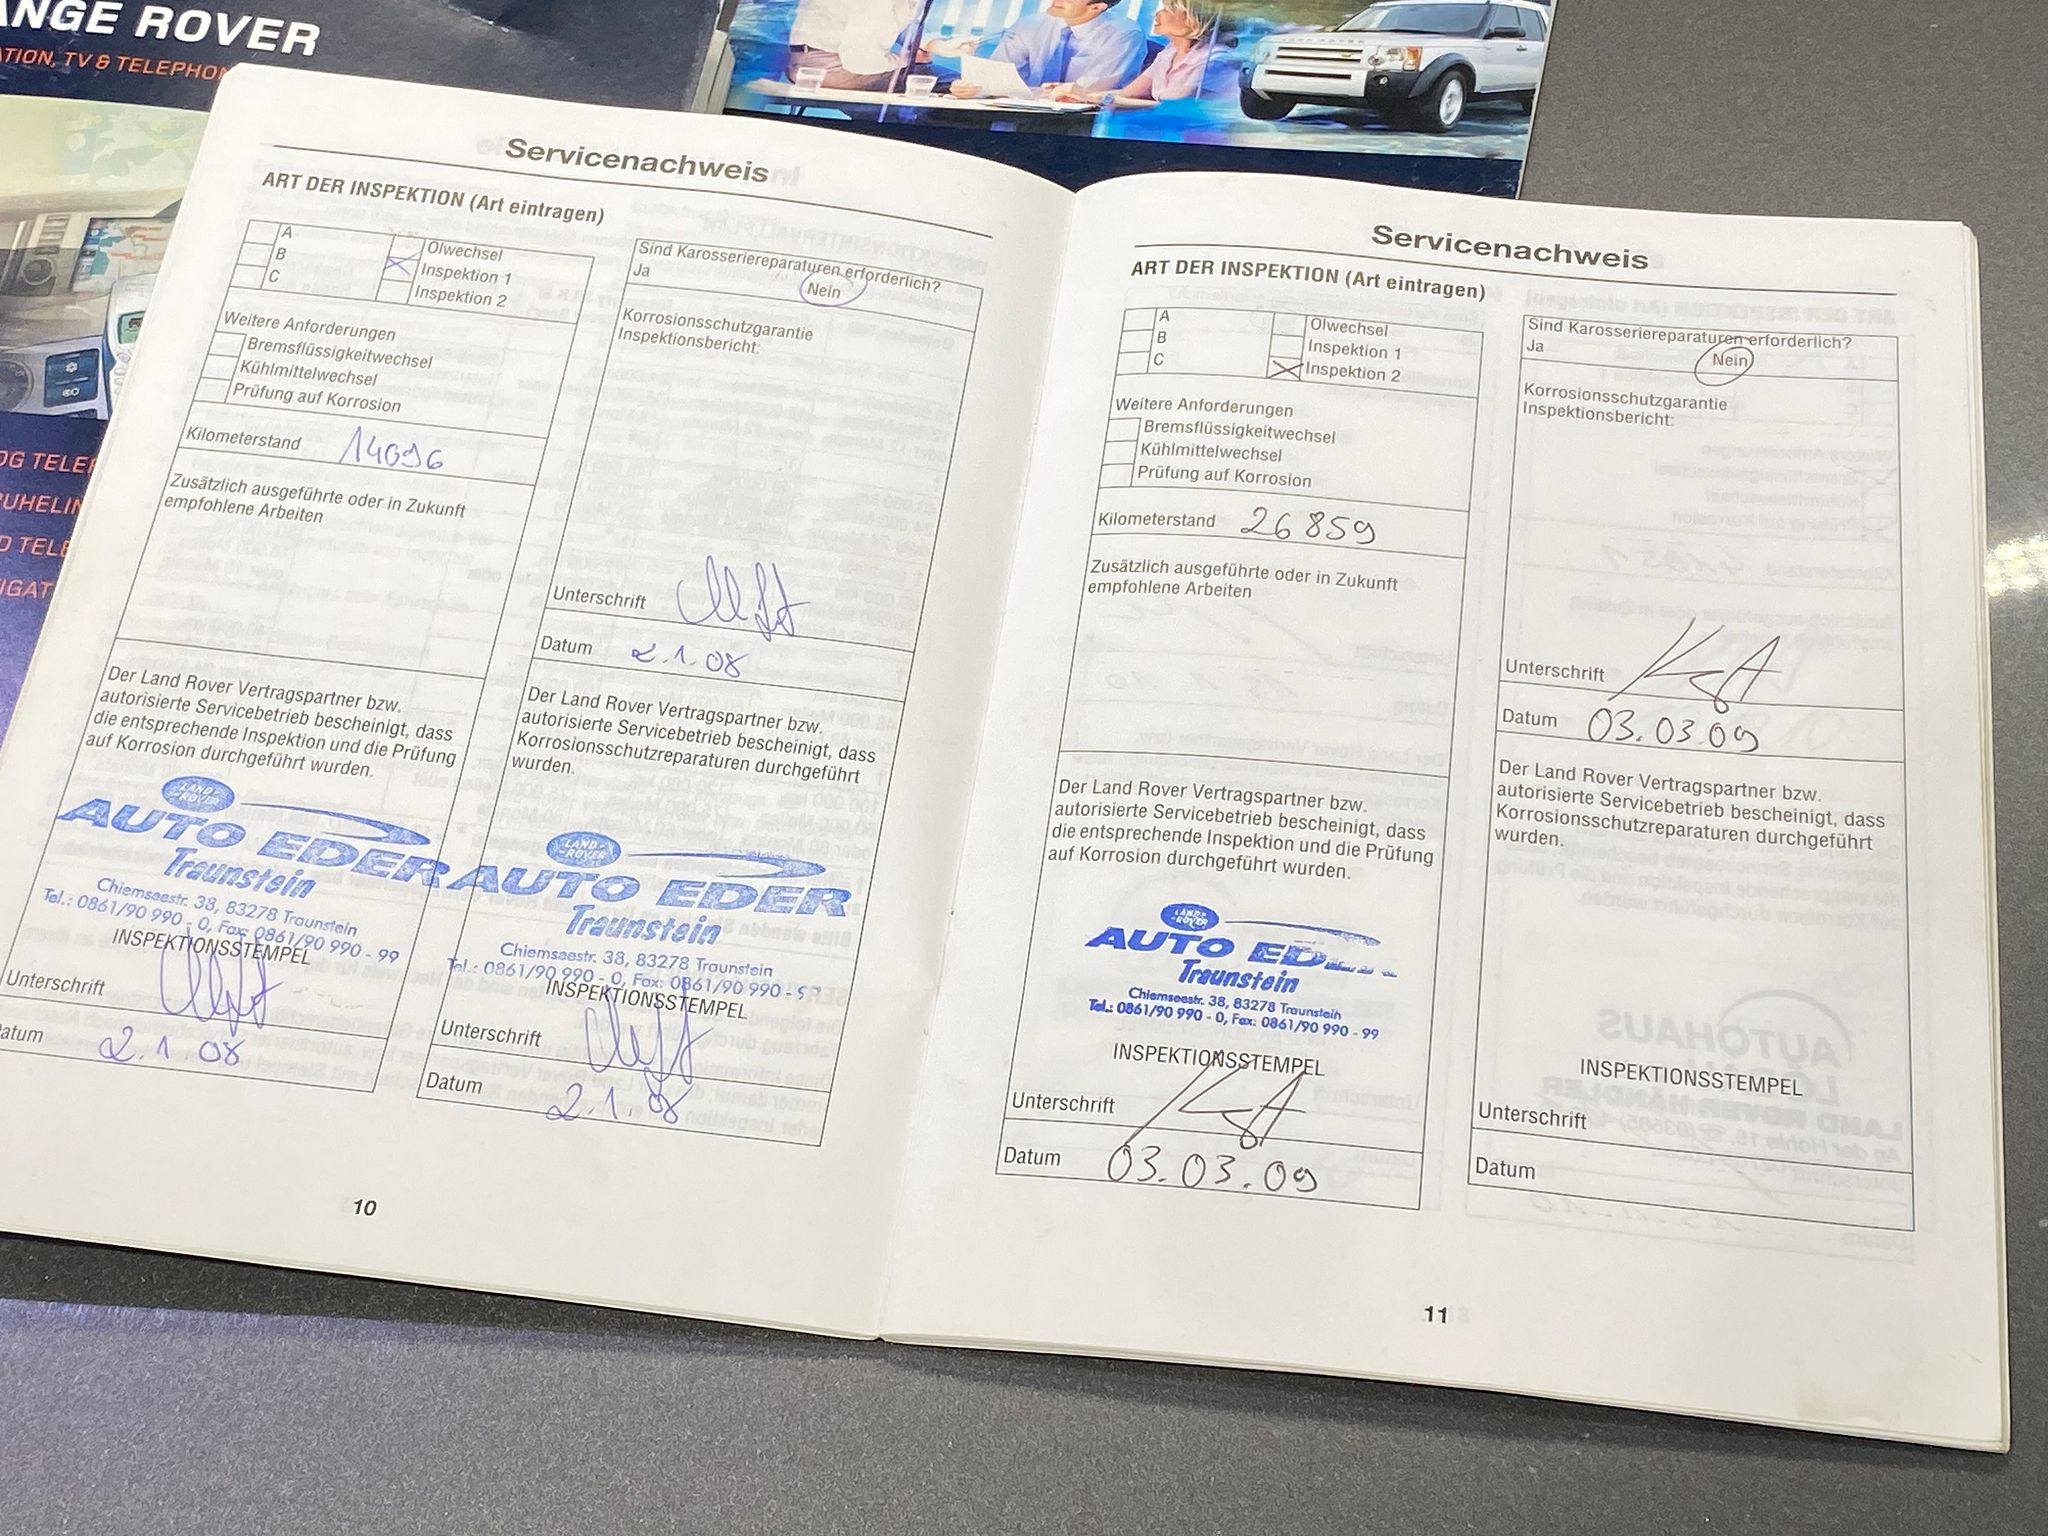 ANGE ROVER
ATION, TV & TELEPHON
OG TELEF
RUHELIN
D TELE
IGAT
Servicenachweis
ART DER INSPEKTION (Art eintragen)
A
B
C
Ölwechsel
Inspektion 1
Inspektion 2
Weitere Anforderungen
Bremsflüssigkeitwechsel
Kühlmittelwechsel
Prüfung auf Korrosion
Kilometerstand 14096
Zusätzlich ausgeführte oder in Zukunft
empfohlene Arbeiten
Der Land Rover Vertragspartner bzw.
autorisierte Servicebetrieb bescheinigt, dass
die entsprechende Inspektion und die Prüfung
auf Korrosion durchgeführt wurden.
LAND ROVER
AUTO EDER
Traunstein
Chiemseestr. 38, 83278 Traunstein
Tel.: 0861/90 990 - 0, Fax: 0861/90 990 - 99
INSPEKTIONSSTEMPEL
Unterschrift
Datum 2.1.08
Sind Karosseriereparaturen erforderlich?
Ja Nein
Korrosionsschutzgarantie
Inspektionsbericht:
Unterschrift
Datum 2.1.08
Der Land Rover Vertragspartner bzw.
autorisierte Servicebetrieb bescheinigt, dass
Korrosionsschutzreparaturen durchgeführt
wurden.
LAND ROVER
AUTO EDER
Traunstein
Chiemseestr. 38, 83278 Traunstein
Tel.: 0861/90 990 - 0, Fax: 0861/90 990 - 99
INSPEKTIONSSTEMPEL
Unterschrift
Datum 2.1.08
10
Servicenachweis
ART DER INSPEKTION (Art eintragen)
A
B
C
Ölwechsel
Inspektion 1
Inspektion 2
Weitere Anforderungen
Bremsflüssigkeitwechsel
Kühlmittelwechsel
Prüfung auf Korrosion
Kilometerstand 26859
Zusätzlich ausgeführte oder in Zukunft
empfohlene Arbeiten
Der Land Rover Vertragspartner bzw.
autorisierte Servicebetrieb bescheinigt, dass
die entsprechende Inspektion und die Prüfung
auf Korrosion durchgeführt wurden.
LAND ROVER
AUTO EDER
Traunstein
Chiemseestr. 38, 83278 Traunstein
Tel.: 0861/90 990 - 0, Fax: 0861/90 990 - 99
INSPEKTIONSSTEMPEL
Unterschrift
Datum 03.03.09
Sind Karosseriereparaturen erforderlich?
Ja Nein
Korrosionsschutzgarantie
Inspektionsbericht:
Unterschrift
Datum 03.03.09
Der Land Rover Vertragspartner bzw.
autorisierte Servicebetrieb bescheinigt, dass
Korrosionsschutzreparaturen durchgeführt
wurden.
INSPEKTIONSSTEMPEL
Unterschrift
Datum
11